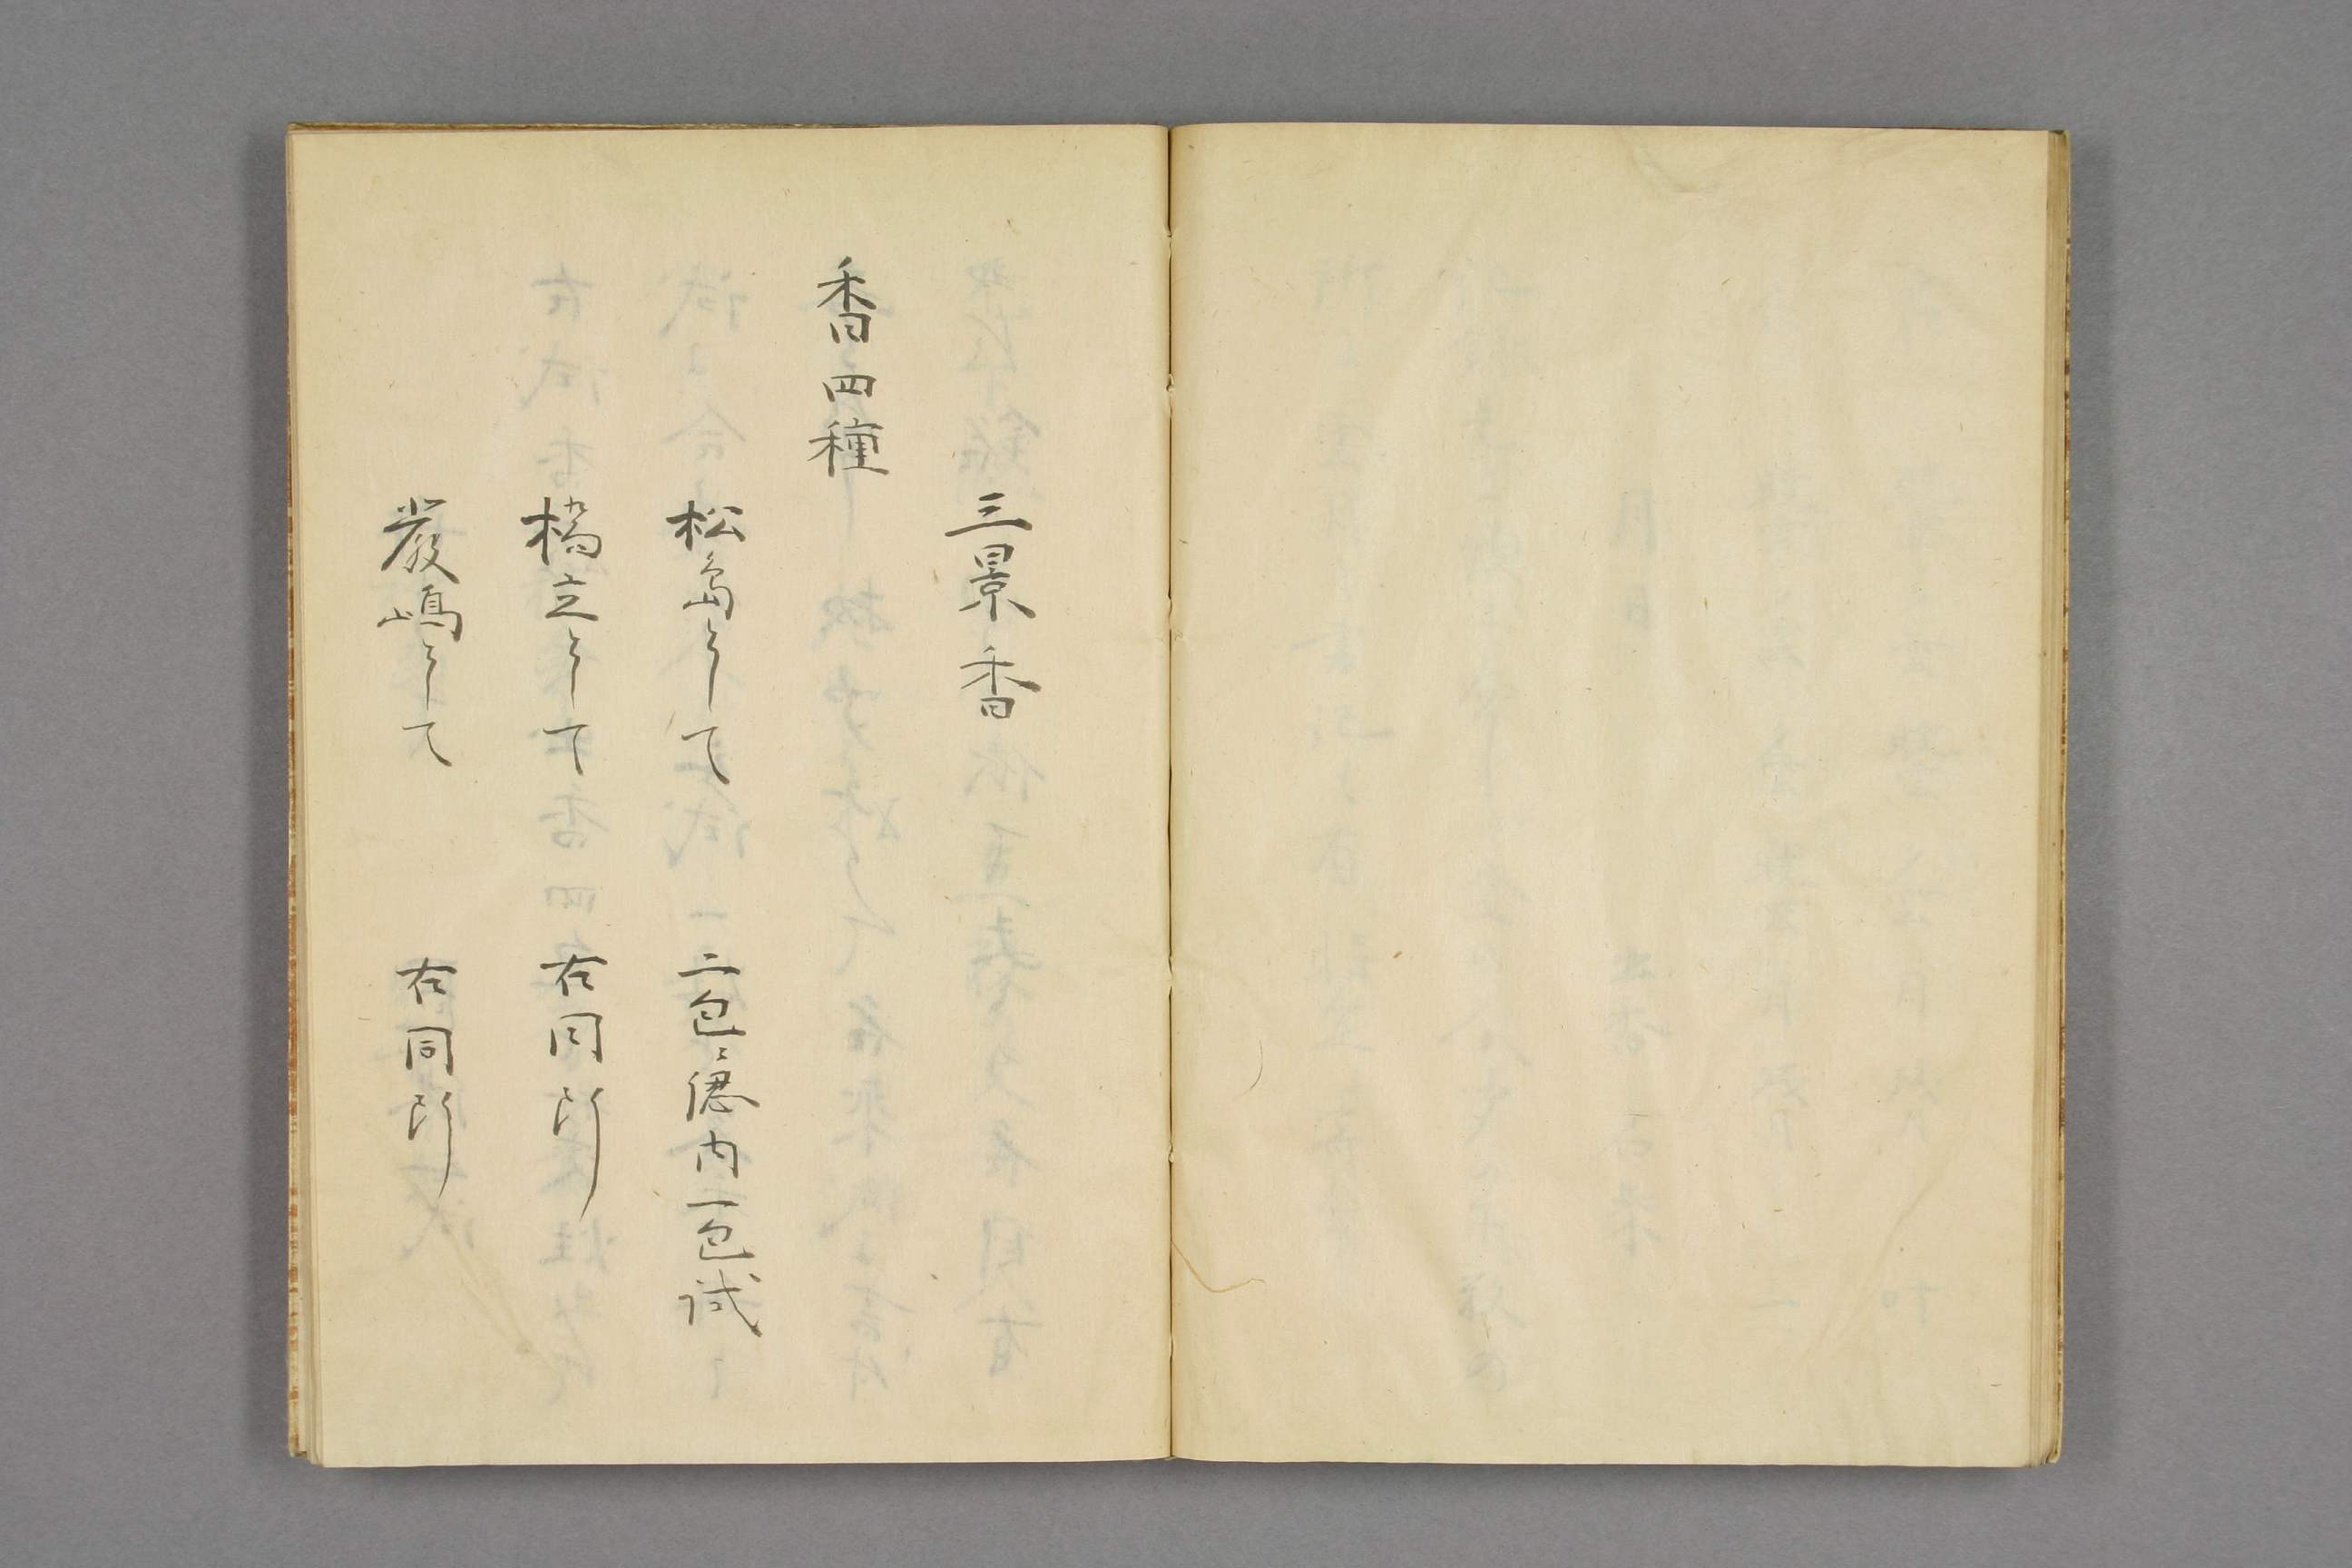 三景香
香四種
松島として 二包ニ〆内一包試
橋立として 右同断
嚴嶋として 右同断